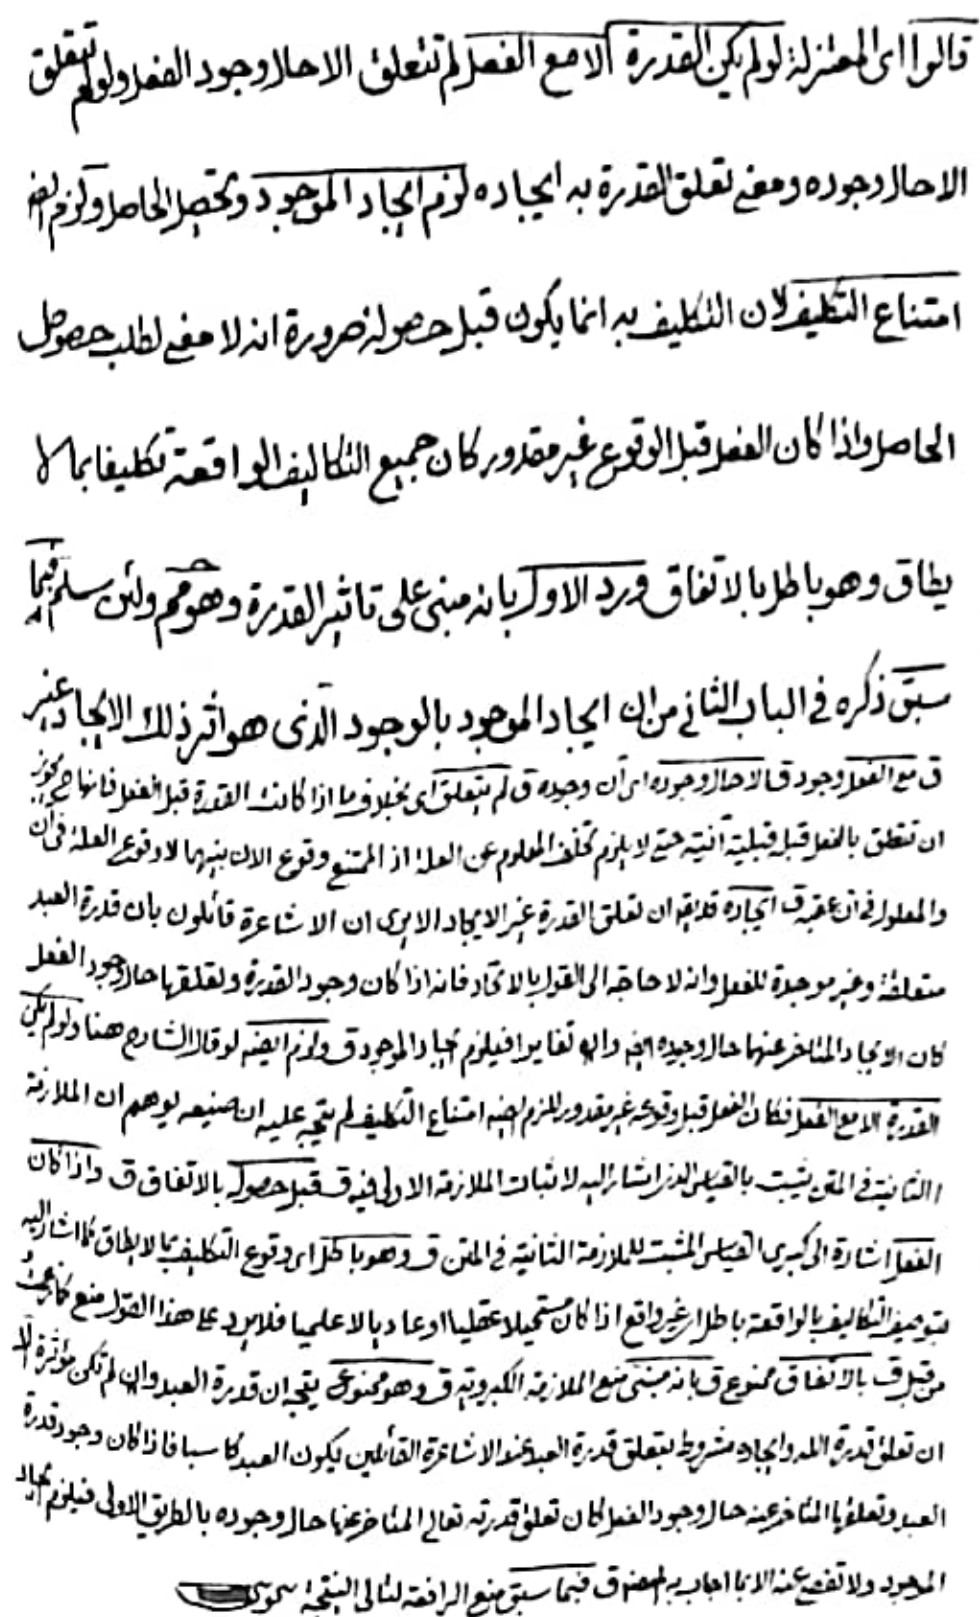 قالوا اى المعتزلة لو لم يكن القدرة الا مع الفعل لم تتعلق الا حال وجود الفعل ولو لم تتعلق
الا حال وجوده ومعنى تعلق القدرة به ايجاده لزم ايجاد الموجود وتحصيل الحاصل ولزم ايضا
امتناع التكليف لان التكليف به انما يكون قبل حصوله ضرورة انه لا معنى لطلب حصول
الحاصل واذا كان الفعل قبل الوقوع غير مقدور كان جميع التكاليف الواقعة تكليفا بما لا
يطاق وهو باطل بالاتفاق ورد الاول بانه مبنى على تاثير القدرة وهو مم ولئن سلم فبما
سبق ذكره فى الباب الثانى من ان ايجاد الموجود بالوجود الذى هو أثر ذلك الايجاد غير
ق مع الفعل وجود ق الا حال وجوده اى آن وجوده ق لم يتعلق اى بخلاف ما اذا كانت القدرة قبل الفعل فانها ح يجوز
ان تتعلق بالفعل قبل قبلية آنية حتى لا يلزم تخلف المعلول عن العلة اذ الممتنع وقوع الان بينهما لا وقوع العلة فى آن
والمعلول فى آن عقبه ق ايجاده قد يقال ان تعلق القدرة غير الايجاد الا يرى ان الاشاعرة قائلون بان قدرة العبد
متعلقة وغير موجدة للفعل وانه لا حاجة الى القول بالاتحاد فانه اذا كان وجود القدرة وتعلقها حال وجود الفعل
كان الايجاد المتاخر عنهما حال وجوده ايضا وان تغايرا فيلزم ايجاد الموجود ق ولزم ايضا لو قال الشارح هنا ولو لم يكن
القدرة الا مع الفعل فكان الفعل قبل وقوعه غير مقدور للزم ايضا امتناع التكليف لم يتجه عليه ان صنيعه يوهم ان الملازمة
الثانية فى المتن يثبت بالقياس الذى اشار اليه لاثبات الملازمة الاولى فيه ق قبل حصوله بالاتفاق ق واذا كان
الفعل اشارة الى كبرى القياس المثبت للملازمة الثانية فى المتن ق وهو باطل اى وقوع التكليف بما لا يطاق كما اشار اليه
بتوصيف التكاليف بالواقعة باطل اى غير واقع اذا كان مستحيلا عقليا او عاديا لا علميا فلا يرد على هذا القول منع كما
من قبل ق بالاتفاق ممنوع ق بانه مبنى منع الملازمة الكبروية ق وهو ممنوع يتجه ان قدرة العبد وان لم تكن مؤثرة الا
ان تعلق قدرة الله وايجاده مشروط بتعلق قدرة العبد عند الاشاعرة القائلين بكون العبد كاسبا فاذا كان وجود قدرة
العبد وتعلقها المتاخر عنه حال وجود الفعل كان تعلق قدرته تعالى المتاخر عنها حال وجوده بالطريق الاولى فيلزم ايجاد
الموجود ولا تفصى عنه الا بما اجاب به المصنف ق فبما سبق منع الرافعة لتالى النتيجة